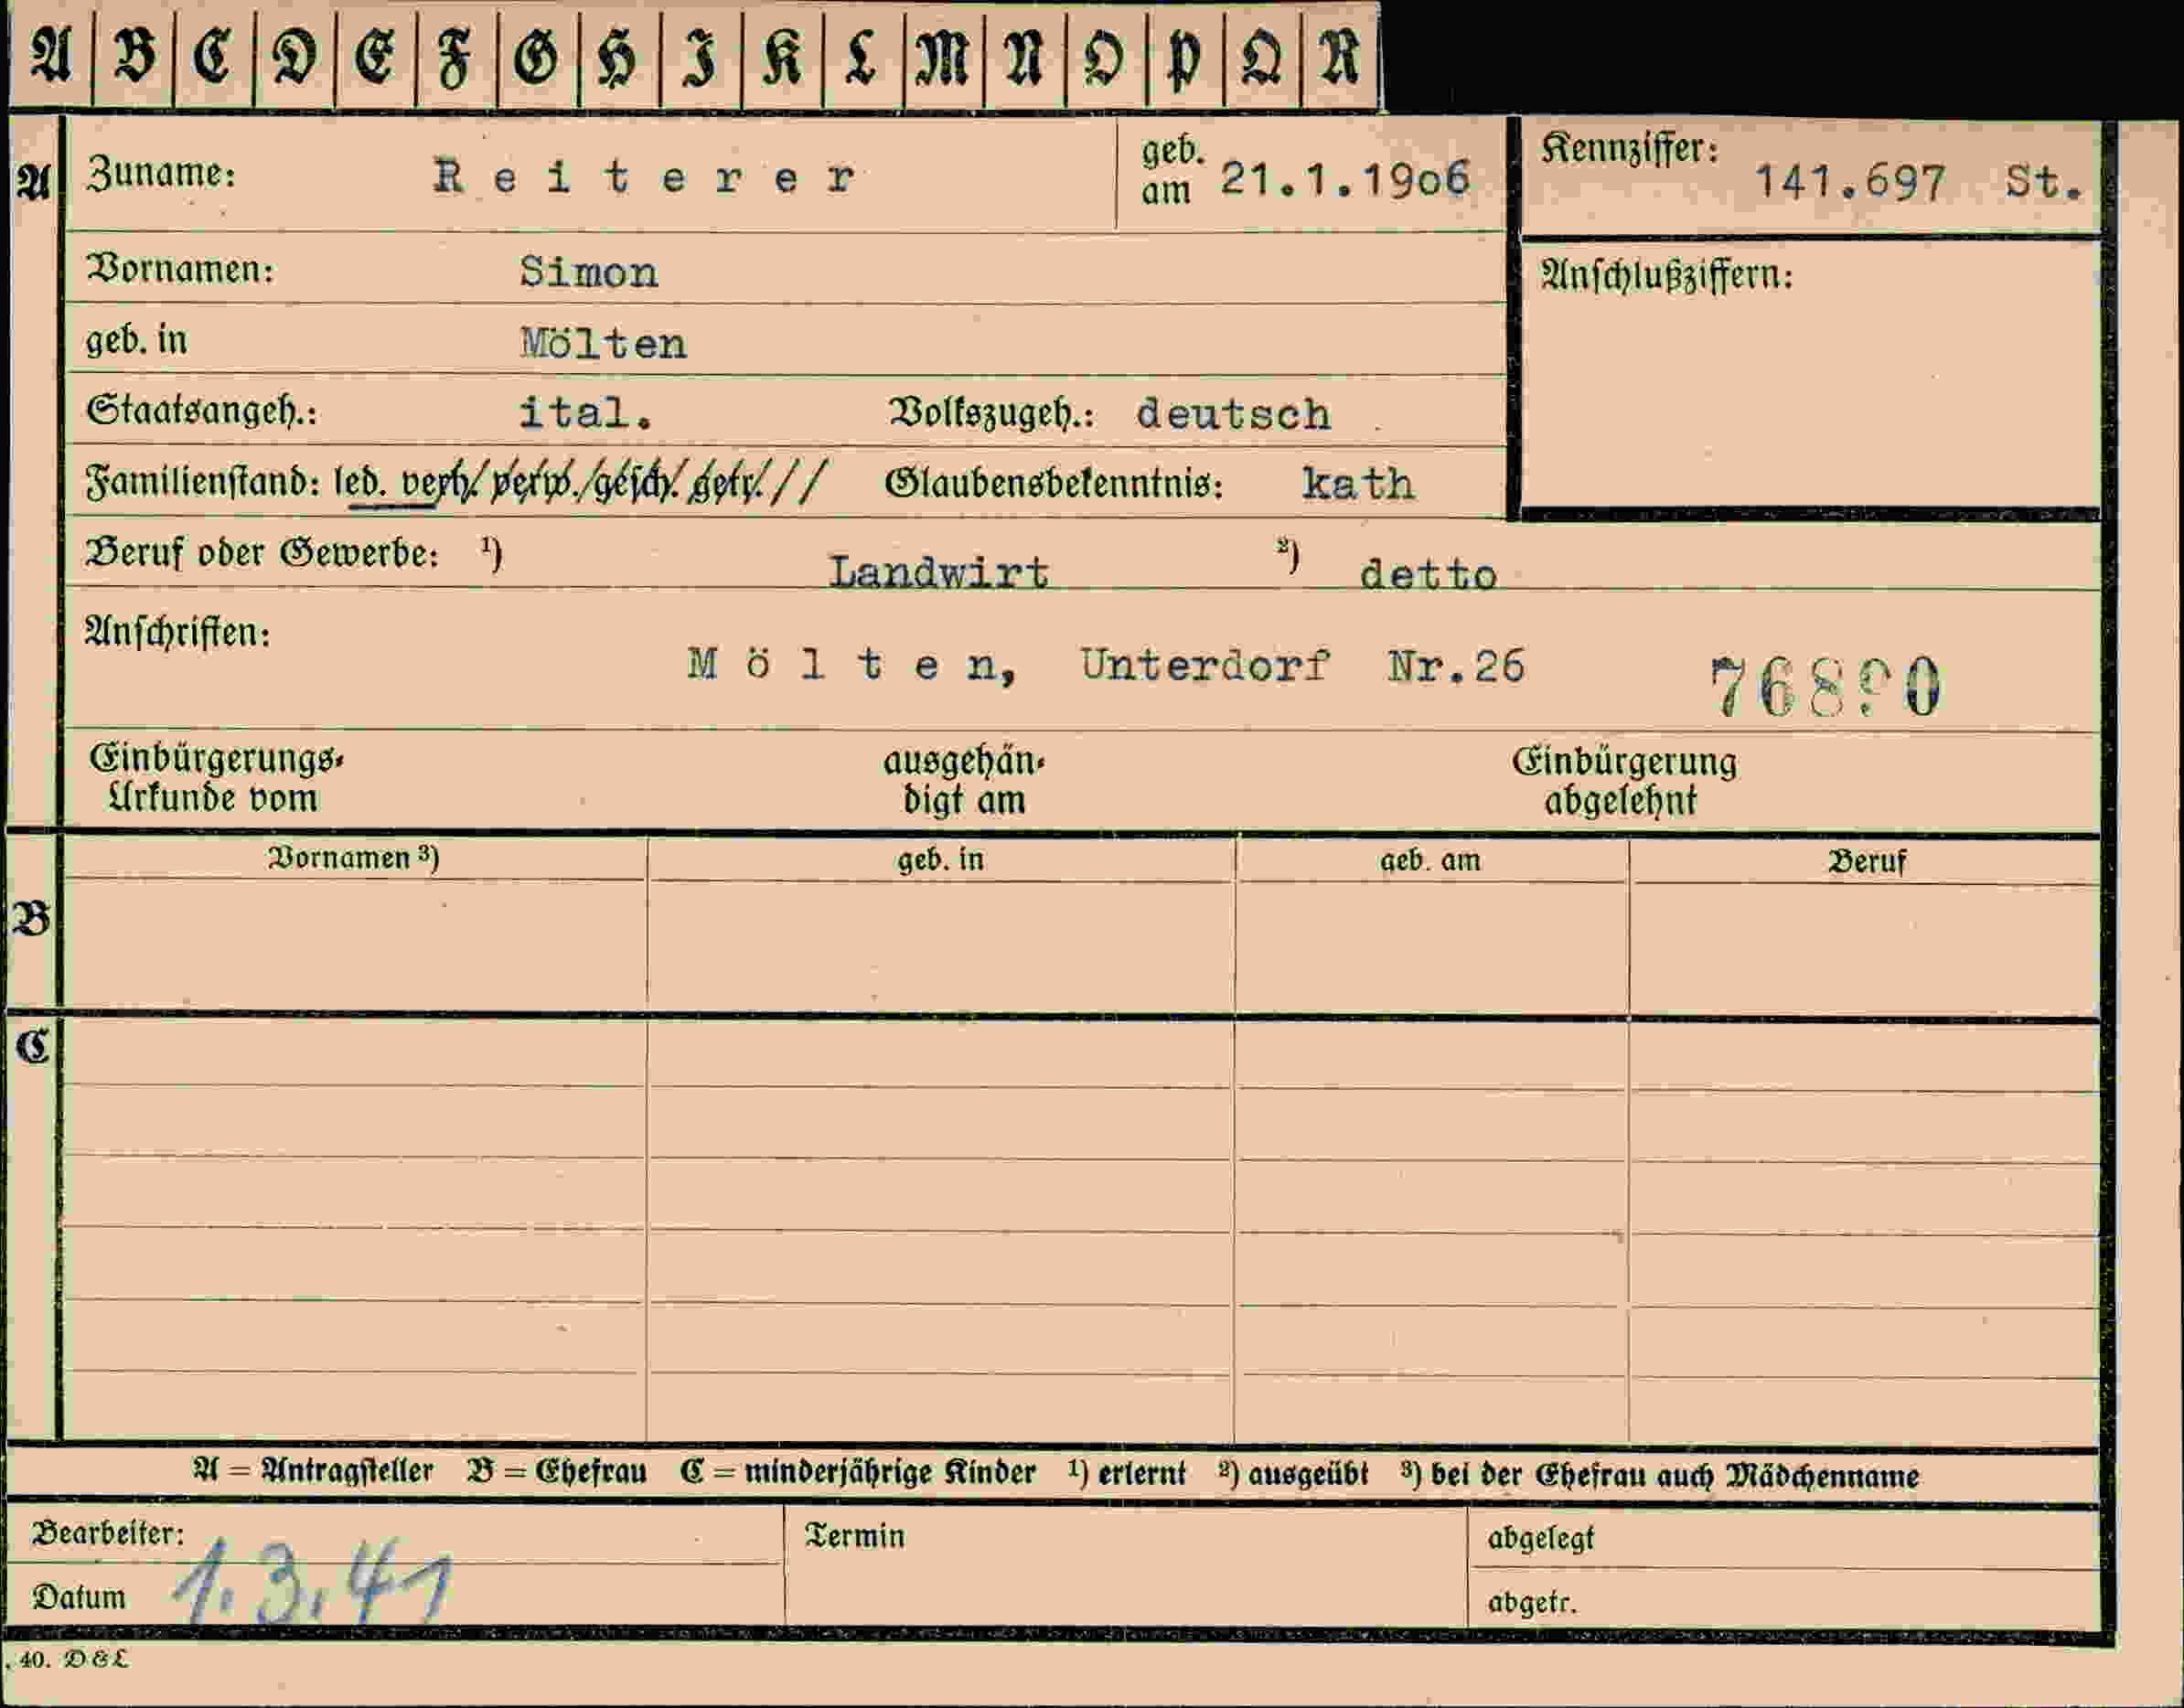 A B C D E F G H I K L M N O P Q R
A Zuname: Reiterer geb. am 21.1.19o6 Kennziffer: 141.697 St.
Vornamen: Simon Anschlußziffern:
geb. in Mölten
Staatsangeh.: ital. Volkszugeh.: deutsch
Familienstand: led. verh. verw. gesch. getr. // Glaubensbekenntnis: kath
Beruf oder Gewerbe: ¹) Landwirt ²) detto
Anschriften:
Mölten, Unterdorf Nr.26
Einbürgerungs- ausgehän- Einbürgerung
Urkunde vom digt am abgelehnt
Vornamen ³) geb. in geb. am Beruf
B
C
A = Antragsteller B = Ehefrau C = minderjährige Kinder ¹) erlernt ²) ausgeübt ³) bei der Ehefrau auch Mädchenname
Bearbeiter: Termin abgelegt
Datum 1.3.41 abgetr.
. 40. D & L